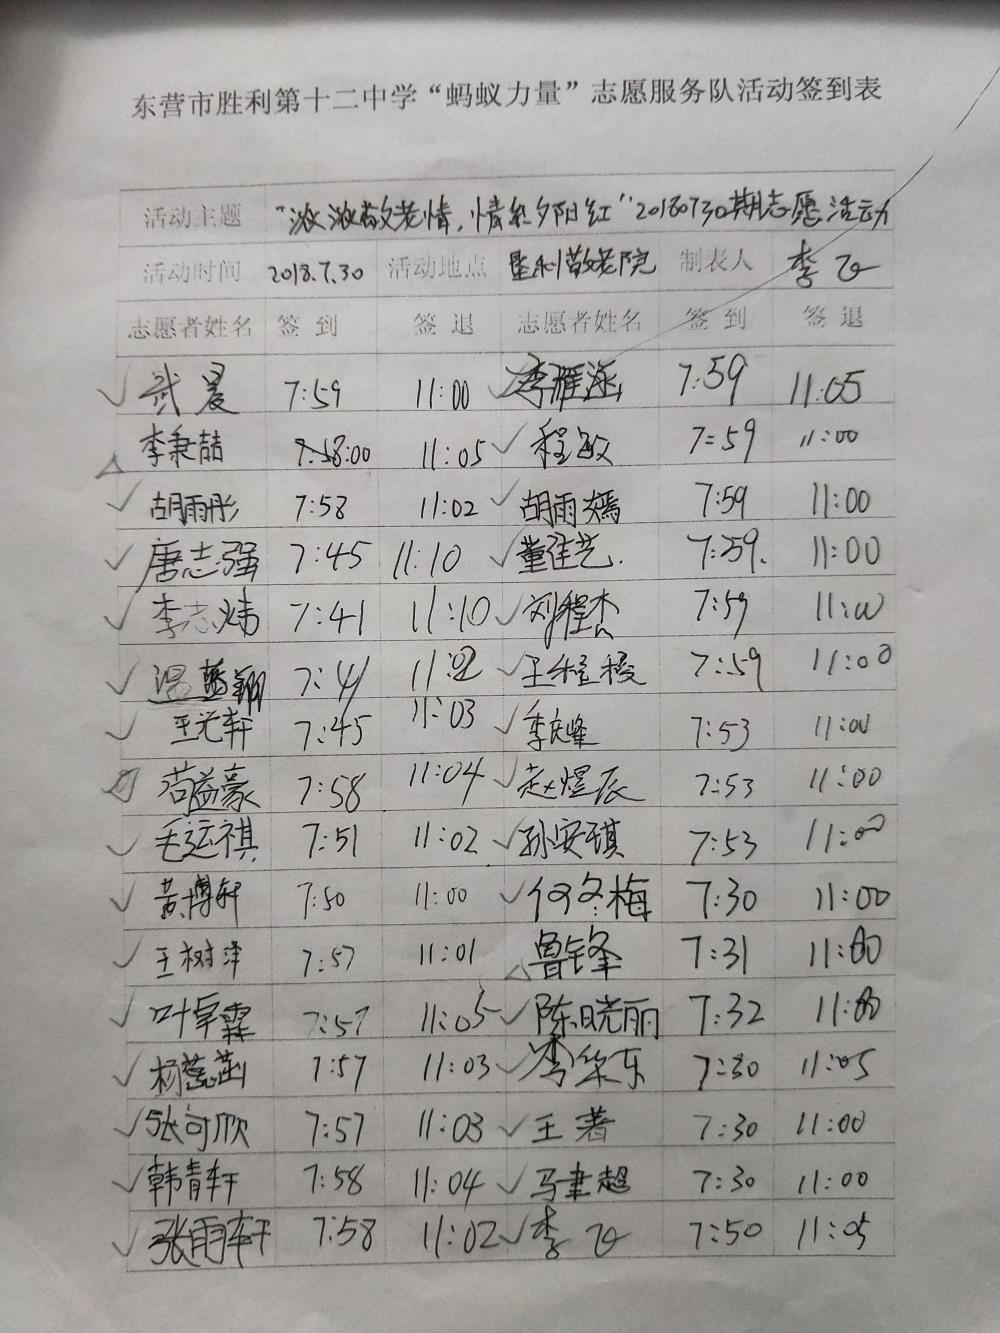 东营市胜利第十二中学“蚂蚁力量”志愿服务队活动签到表
活动主题 “浓浓敬老情,情系夕阳红”20180730期志愿活动
活动时间 2018.7.30 活动地点 垦利敬老院 制表人 李飞
志愿者姓名 签到 签退 志愿者姓名 签到 签退
武晨 7:59 11:00 李雁涵 7:59 11:05
李秉喆 7:58:00 11:05 程敏 7:59 11:00
胡雨彤 7:58 11:02 胡雨嫣 7:59 11:00
唐志强 7:45 11:10 董佳艺. 7:59. 11:00
李志炜 7:41 11:10 刘程杰 7:59 11:00
温蓝翔 7:41 11:02 王程稷 7:59 11:00
王光轩 7:45 11:03 李庆峰 7:53 11:00
苟益豪 7:58 11:04 赵煜辰 7:53 11:00
毛运祺 7:51 11:02 孙安琪 7:53 11:00
黄博轩 7:50 11:00 何冬梅 7:30 11:00
王树泽 7:57 11:01 鲁锋 7:31 11:00
叶卓霖 7:57 11:05 陈晓丽 7:32 11:00
杨蕊菡 7:57 11:03 李华东 7:30 11:05
张可欣 7:57 11:03 王著 7:30 11:00
韩青轩 7:58 11:04 马聿超 7:30 11:00
张雨轩 7:58 11:02 李飞 7:50 11:05